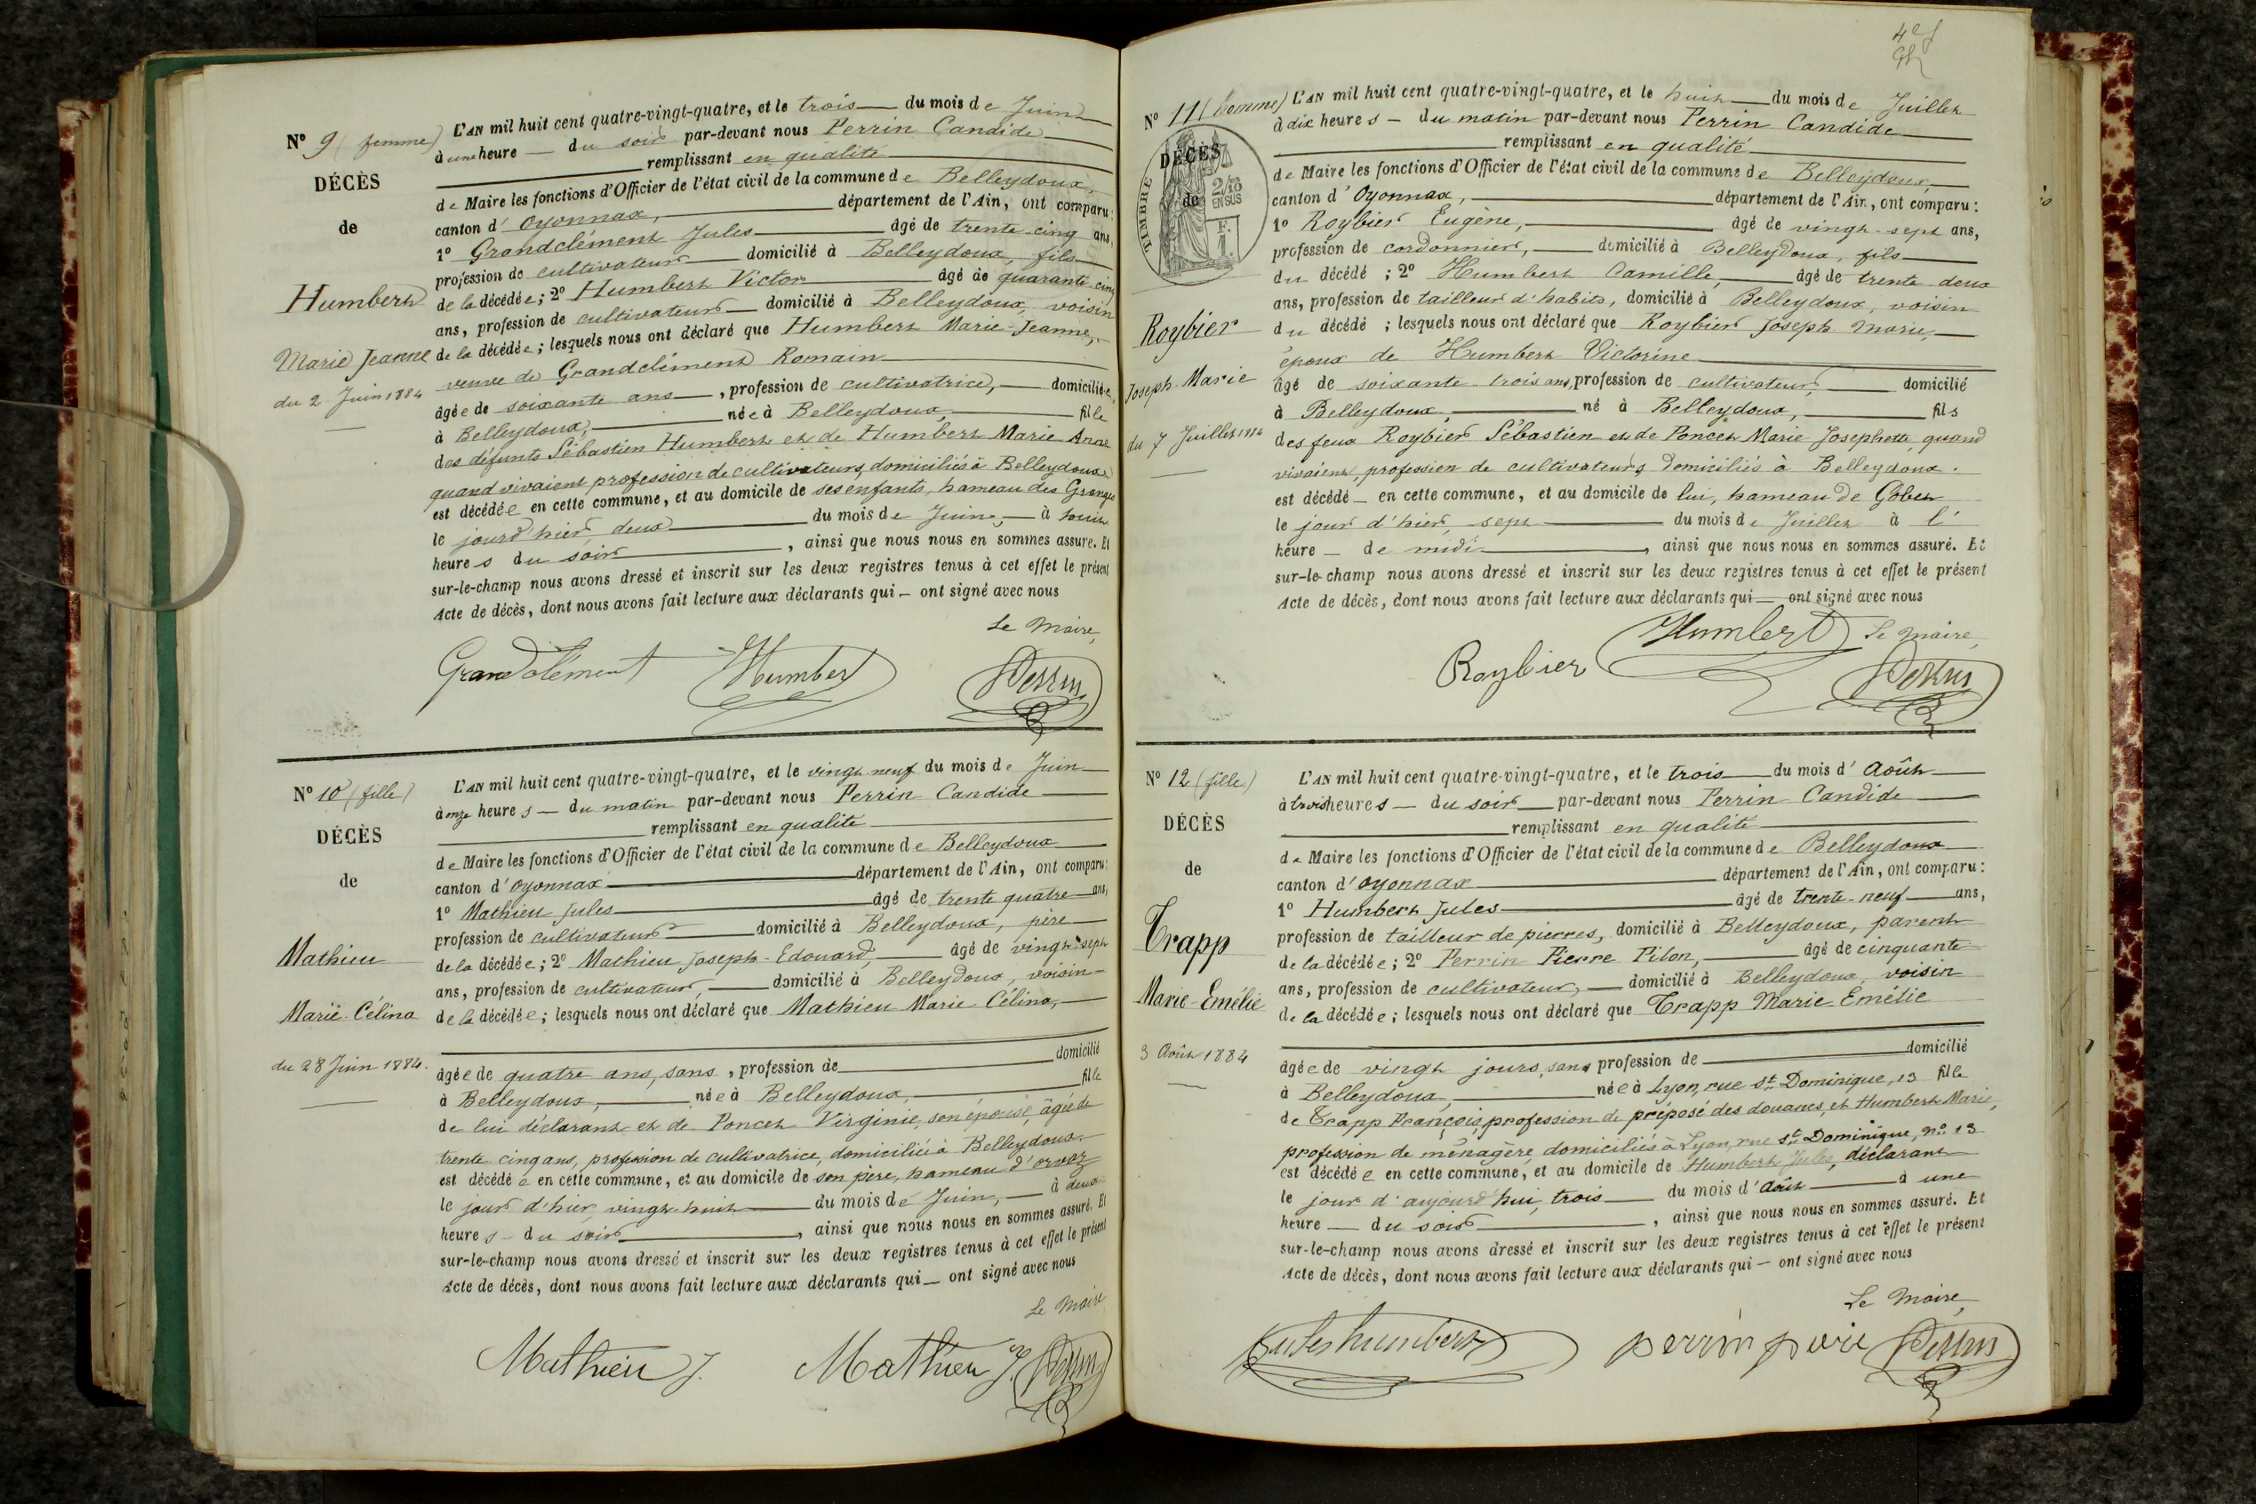 Nº 9 (femme)
DÉCÈS
de
Humbert
Marie Jeanne
du 2 Juin 1884
L'AN mil huit cent quatre-vingt-quatre, et le trois du mois de Juin
à une heure du soir par-devant nous Perrin Candide
remplissant en qualité
de Maire les fonctions d'Officier de l'état civil de la commune de Belleydoux,
canton d'Oyonnax, département de l'Ain, ont comparu:
1º Grandclément Jules âgé de trente-cinq ans,
profession de cultivateur domicilié à Belleydoux, fils
de la décédée; 2º Humbert Victor âgé de quarante cinq
ans, profession de cultivateur domicilié à Belleydoux, voisin
de la décédée; lesquels nous ont déclaré que Humbert Marie-Jeanne,
veuve de Grandclément Romain
âgée de soixante ans, profession de cultivatrice, domiciliée,
à Belleydoux, née à Belleydoux, fille
des défunts Sébastien Humbert et de Humbert Marie Anne
quand vivaient profession de cultivateurs, domiciliés à Belleydoux
est décédée en cette commune, et au domicile de ses enfants, hameau des Granges
le jour d'hier, deux du mois de Juin, à
heures du soir, ainsi que nous nous en sommes assuré. Et
sur-le-champ nous avons dressé et inscrit sur les deux registres tenus à cet effet le présent
Acte de décès, dont nous avons fait lecture aux déclarants qui ont signé avec nous
Le Maire,
Grandclément Humbert Perrin
Nº 10 (fille)
DÉCÈS
de
Mathieu
Marie-Célina
du 28 Juin 1884.
L'AN mil huit cent quatre-vingt-quatre, et le vingt-neuf du mois de Juin
à onze heures du matin par-devant nous Perrin Candide
remplissant en qualité
de Maire les fonctions d'Officier de l'état civil de la commune de Belleydoux
canton d'Oyonnax département de l'Ain, ont comparu:
1º Mathieu Jules âgé de trente quatre ans,
profession de cultivateur domicilié à Belleydoux, père
de la décédée; 2º Mathieu Joseph-Edouard, âgé de vingt-sept
ans, profession de cultivateur, domicilié à Belleydoux, voisin
de la décédée; lesquels nous ont déclaré que Mathieu Marie Célina,
âgée de quatre ans, sans, profession de domicilié
à Belleydoux, née à Belleydoux, fille
de lui déclarant et de Poncet Virginie, son épouse, âgée de
trente cinq ans, profession de cultivatrice, domiciliée à Belleydoux.
est décédée en cette commune, et au domicile de son père, hameau d'Orvaz
le jour d'hier vingt-huit du mois de Juin, à deux
heures du soir, ainsi que nous nous en sommes assuré. Et
sur-le-champ nous avons dressé et inscrit sur les deux registres tenus à cet effet le présent
Acte de décès, dont nous avons fait lecture aux déclarants qui ont signé avec nous
Le Maire
Mathieu J. Mathieu J. Perrin
Nº 11 (homme)
TIMBRE
2/10 EN SUS
F. 1.
DÉCÈS
de
Roybier
Joseph-Marie
du 7 Juillet 1884
L'AN mil huit cent quatre-vingt-quatre, et le huit du mois de Juillet
à dix heures du matin par-devant nous Perrin Candide
remplissant en qualité
de Maire les fonctions d'Officier de l'état civil de la commune de Belleydoux,
canton d'Oyonnax, département de l'Ain, ont comparu:
1º Roybier Eugène, âgé de vingt-sept ans,
profession de cordonnier, domicilié à Belleydoux, fils
du décédé; 2º Humbert Camille, âgé de trente deux
ans, profession de tailleur d'habits, domicilié à Belleydoux, voisin
du décédé; lesquels nous ont déclaré que Roybier Joseph Marie,
époux de Humbert Victorine
âgé de soixante-trois ans, profession de cultivateur, domicilié
à Belleydoux, né à Belleydoux, fils
des feux Roybier Sébastien et de Poncet Marie Josephette, quand
vivaient, profession de cultivateurs domiciliés à Belleydoux.
est décédé en cette commune, et au domicile de lui, hameau de Gobet
le jour d'hier, sept du mois de Juillet à l'
heure de midi, ainsi que nous nous en sommes assuré. Et
sur-le-champ nous avons dressé et inscrit sur les deux registres tenus à cet effet le présent
Acte de décès, dont nous avons fait lecture aux déclarants qui ont signé avec nous
Le Maire,
Roybier Humbert Perrin
Nº 12 (fille)
DÉCÈS
de
Trapp
Marie-Emélie
3 Août 1884
L'AN mil huit cent quatre-vingt-quatre, et le trois du mois d'Août
à trois heures du soir par-devant nous Perrin Candide
remplissant en qualité
de Maire les fonctions d'Officier de l'état civil de la commune de Belleydoux
canton d'Oyonnax département de l'Ain, ont comparu:
1º Humbert Jules âgé de trente-neuf ans,
profession de tailleur de pierres, domicilié à Belleydoux, parent
de la décédée; 2º Perrin Pierre Pilon, âgé de cinquante
ans, profession de cultivateur, domicilié à Belleydoux, voisin
de la décédée; lesquels nous ont déclaré que Trapp Marie Emélie
âgée de vingt jours, sans profession de domicilié
à Belleydoux, née à Lyon, rue St Dominique, 13 fille
de Trapp François, profession de préposé des douanes, et Humbert Marie,
profession de ménagère, domiciliés à Lyon, rue St Dominique, nº 13
est décédée en cette commune, et au domicile de Humbert Jules, déclarant
le jour d'aujourd'hui, trois du mois d'Août à une
heure du soir, ainsi que nous nous en sommes assuré. Et
sur-le-champ nous avons dressé et inscrit sur les deux registres tenus à cet effet le présent
Acte de décès, dont nous avons fait lecture aux déclarants qui ont signé avec nous
Le Maire,
Jules humbert perrin Perrin